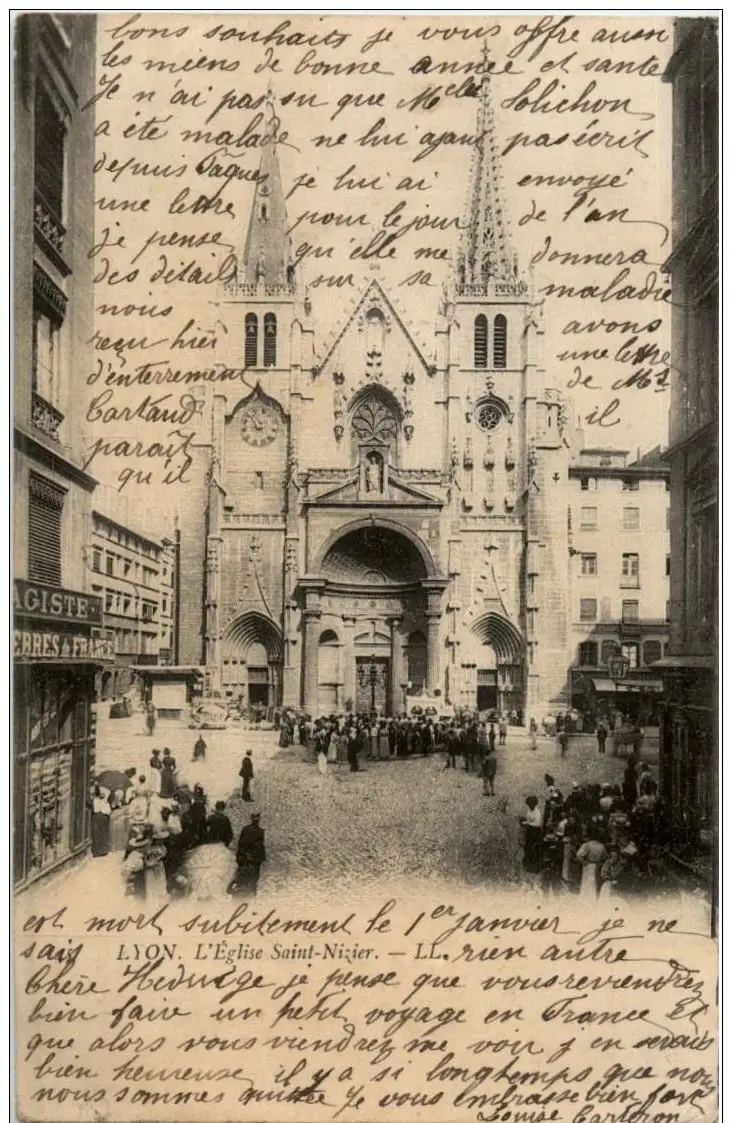 bons souhaits je vous offre aussi
les miens de bonne année et santé
Je n'ai pas su que Melle Solichon
a été malade ne lui ayant pas écrit
depuis Pâques je lui ai envoyé
une lettre pour le jour de l'an
je pense qu'elle me donnera
des détails sur sa maladie
nous avons
reçu hier une lettre
d'enterrement de Mr
Cartaud il
paraît
qu'il
AGISTE
ERRES de FRANCE
est mort subitement le 1er Janvier je ne
sais rien autre
LYON. L'Église Saint-Nizier. — LL.
Chère Hedwige je pense que vous reviendrez
bien faire un petit voyage en France et
que alors vous viendrez me voir j'en serais
bien heureuse il y a si longtemps que nous
nous sommes quittée Je vous embrasse bien fort
Louise Carteron